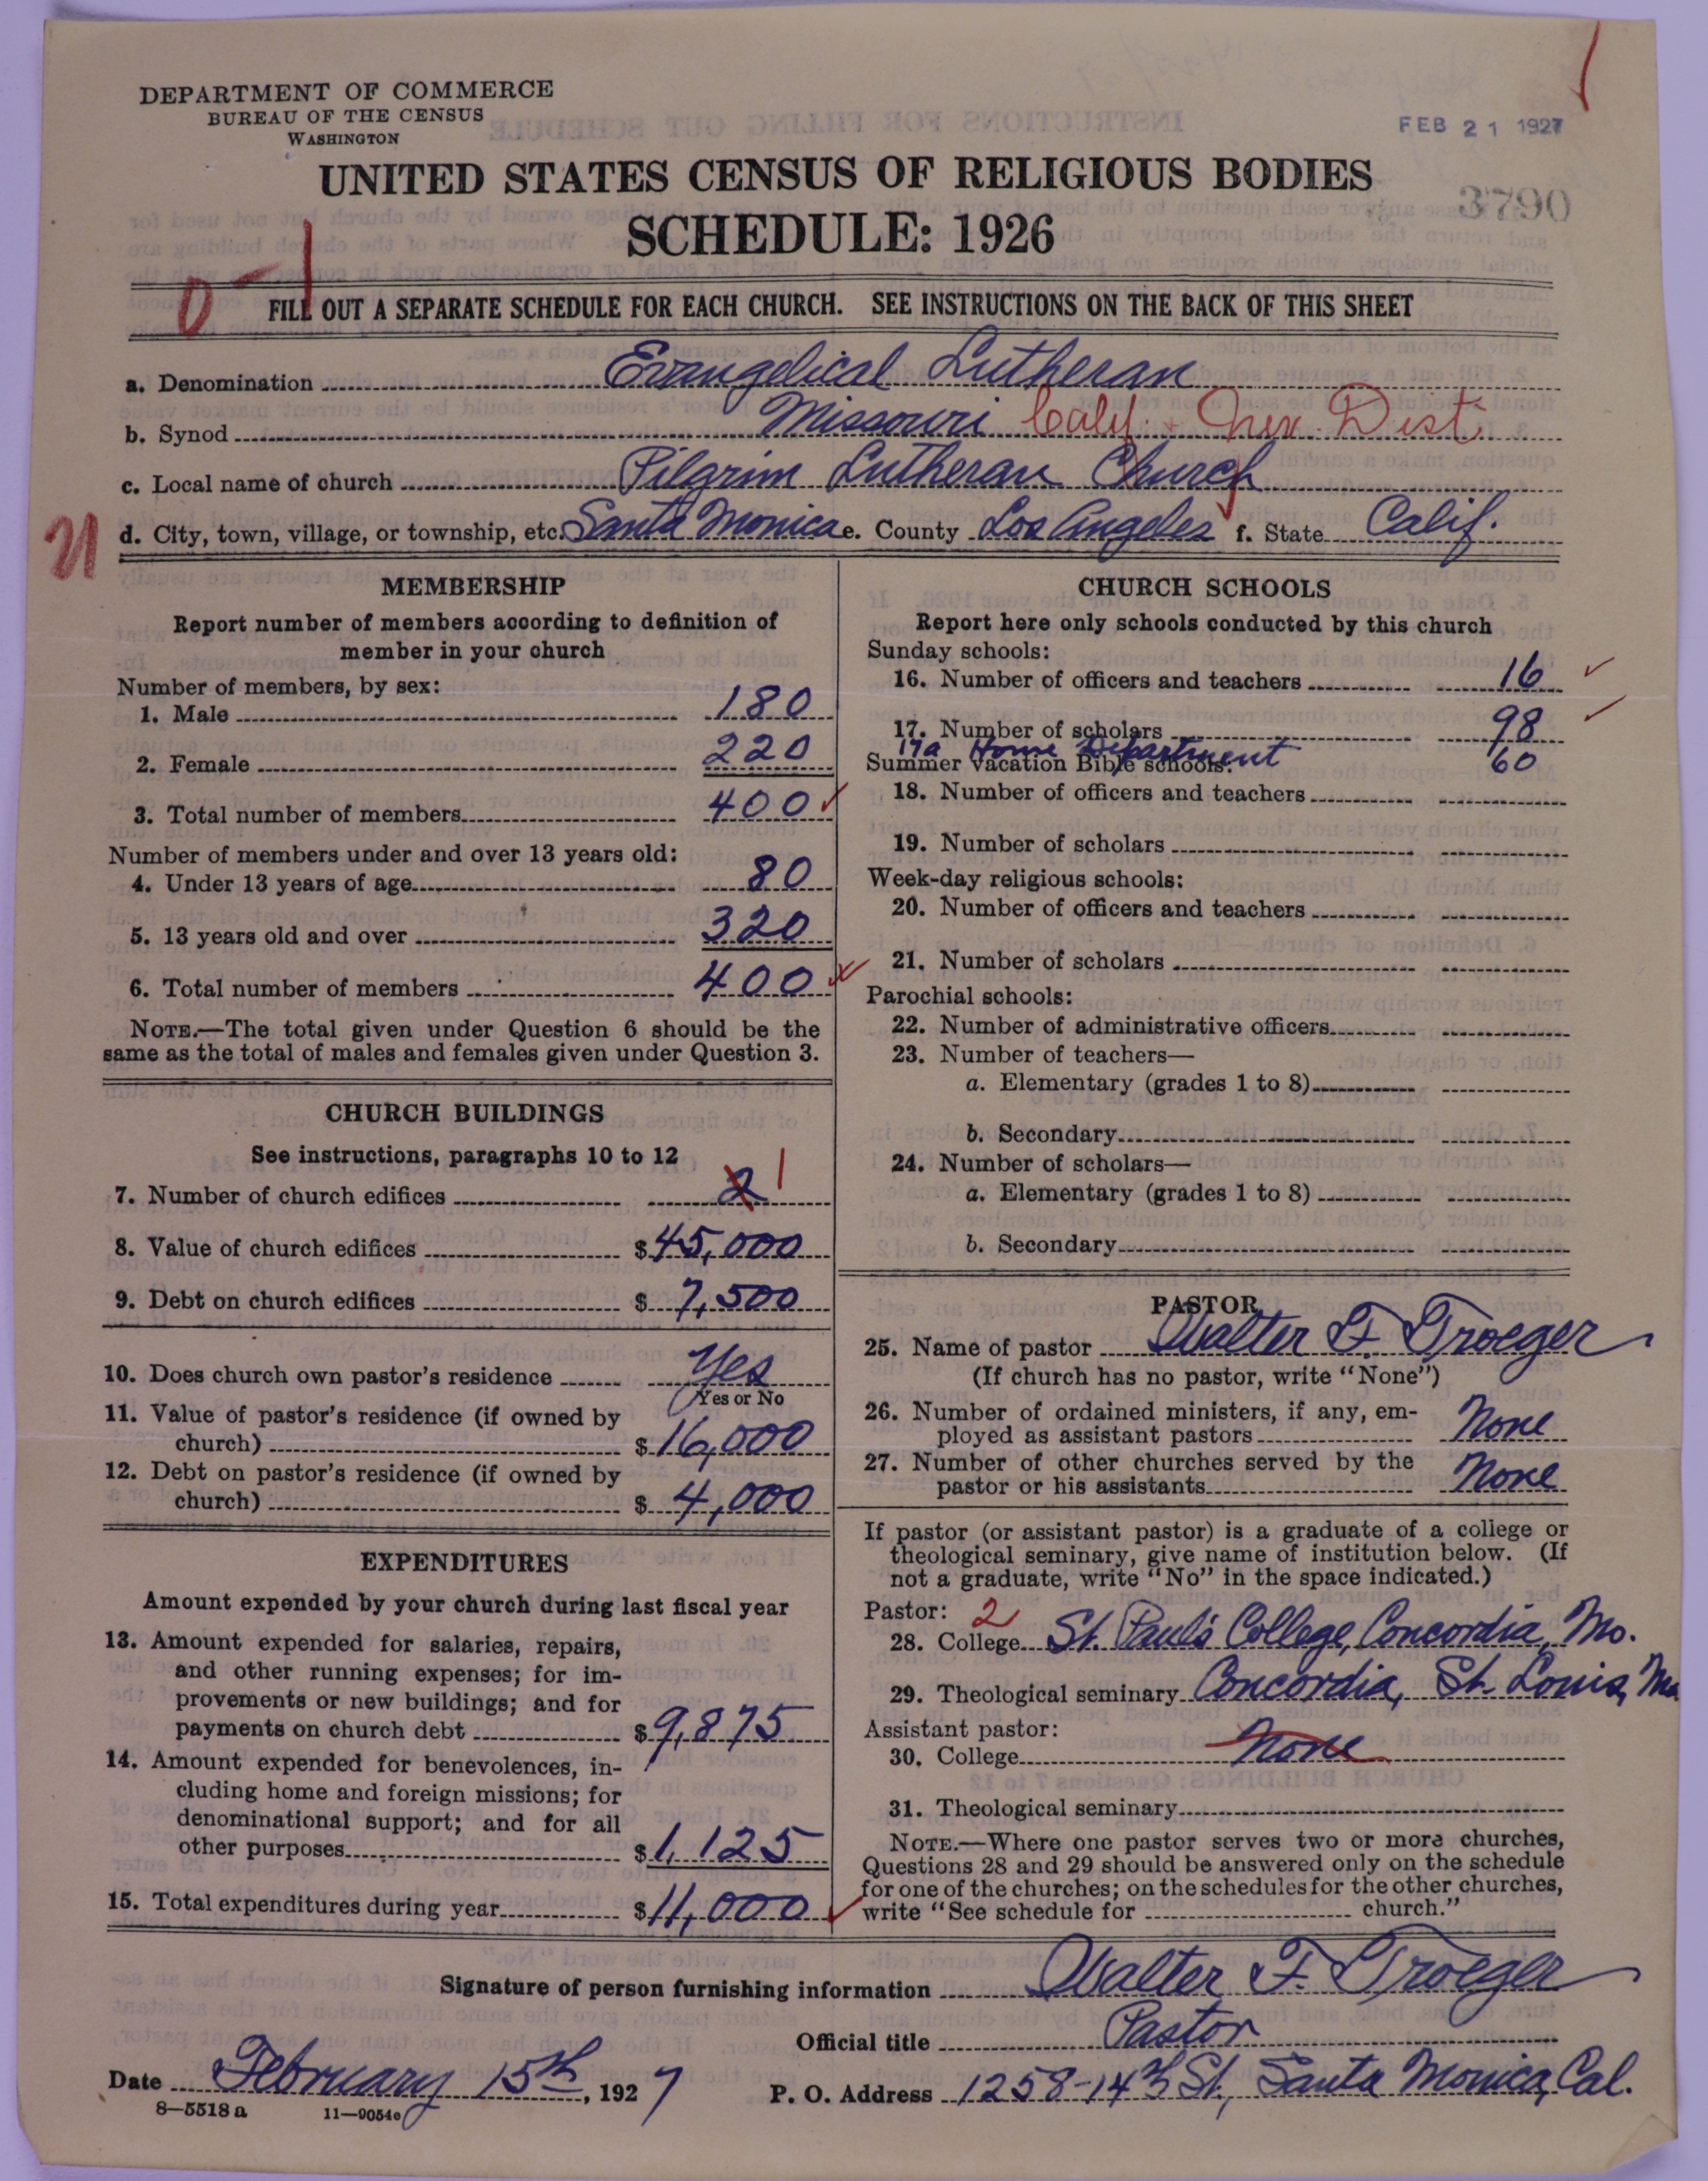 DEPARTMENT OF COMMERCE
BUREAU OF THE CENSUS
WASHINGTON
FEB 21 1927
UNITED STATES CENSUS OF RELIGIOUS BODIES
3790
SCHEDULE: 1926
0 1
FILL OUT A SEPARATE SCHEDULE FOR EACH CHURCH. SEE INSTRUCTIONS ON THE BACK OF THIS SHEET
a. Denomination Evangelical Lutheran
b. Synod Missouri Calif. + Nev. Dist.
c. Local name of church Pilgrim Lutheran Church
21
d. City, town, village, or township, etc. Santa Monica e. County Los Angeles f. State Calif.
MEMBERSHIP
Report number of members according to definition of
member in your church
Number of members, by sex:
1. Male 180
2. Female 220
3. Total number of members 400
Number of members under and over 13 years old:
4. Under 13 years of age 80
5. 13 years old and over 320
6. Total number of members 400
NOTE.—The total given under Question 6 should be the
same as the total of males and females given under Question 3.
CHURCH BUILDINGS
See instructions, paragraphs 10 to 12
7. Number of church edifices 2 1
8. Value of church edifices $ 45,000
9. Debt on church edifices $ 7,500
10. Does church own pastor's residence Yes
Yes or No
11. Value of pastor's residence (if owned by
church) $ 16,000
12. Debt on pastor's residence (if owned by
church) $ 4,000
EXPENDITURES
Amount expended by your church during last fiscal year
13. Amount expended for salaries, repairs,
and other running expenses; for im-
provements or new buildings; and for
payments on church debt $ 9,875
14. Amount expended for benevolences, in-
cluding home and foreign missions; for
denominational support; and for all
other purposes $ 1,125
15. Total expenditures during year $ 11,000
CHURCH SCHOOLS
Report here only schools conducted by this church
Sunday schools:
16. Number of officers and teachers 16
17. Number of scholars 98
17a Home Department 60
Summer vacation Bible schools:
18. Number of officers and teachers
19. Number of scholars
Week-day religious schools:
20. Number of officers and teachers
21. Number of scholars
Parochial schools:
22. Number of administrative officers
23. Number of teachers—
a. Elementary (grades 1 to 8)
b. Secondary
24. Number of scholars—
a. Elementary (grades 1 to 8)
b. Secondary
PASTOR
25. Name of pastor Walter F. Troeger
(If church has no pastor, write "None")
26. Number of ordained ministers, if any, em-
ployed as assistant pastors None
27. Number of other churches served by the
pastor or his assistants None
If pastor (or assistant pastor) is a graduate of a college or
theological seminary, give name of institution below. (If
not a graduate, write "No" in the space indicated.)
Pastor: 2
28. College St. Paul's College, Concordia, Mo.
29. Theological seminary Concordia, St. Louis, Mo
Assistant pastor:
30. College None
31. Theological seminary
NOTE.—Where one pastor serves two or more churches,
Questions 28 and 29 should be answered only on the schedule
for one of the churches; on the schedules for the other churches,
write "See schedule for church."
Signature of person furnishing information Walter F. Troeger
Official title Pastor
Date February 15th, 1927
P. O. Address 1258-14th St., Santa Monica, Cal.
8—5518a 11—9054c